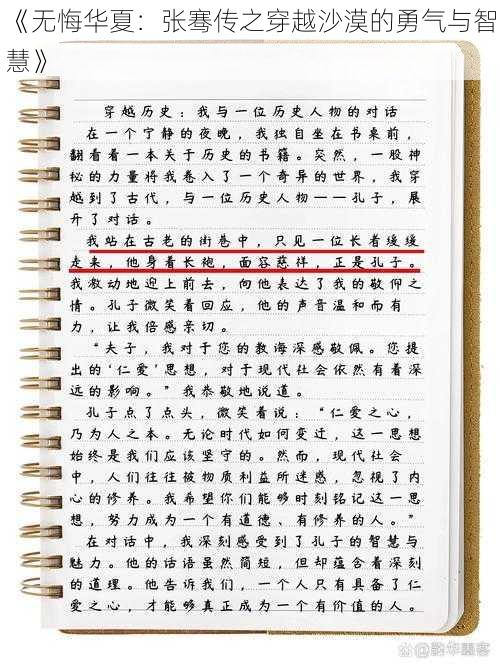 《无悔华夏：张骞传之穿越沙漠的勇气与智
慧》
穿越历史：我与一位历史人物的对话
在一个宁静的夜晚，我独自坐在书桌前，
翻看着一本关于历史的书籍。突然，一股神
秘的力量将我卷入了一个奇异的世界，我穿
越到了古代，与一位历史人物——孔子，展
开了对话。
我站在古老的街巷中，只见一位长者缓缓
走来，他身着长袍，面容慈祥，正是孔子。
我激动地迎上前去，向他表达了我的敬仰之
情。孔子微笑着回应，他的声音温和而有
力，让我倍感亲切。
“夫子，我对于您的教诲深感敬佩。您提
出的‘仁爱’思想，对于现代社会依然有着深
远的影响。”我恭敬地说道。
孔子点了点头，微笑着说：“仁爱之心，
乃为人之本。无论时代如何变迁，这一思想
始终是我们应该坚守的。然而，现代社会
中，人们往往被物质利益所迷惑，忽视了内
心的修养。我希望你们能够时刻铭记这一思
想，努力成为一个有道德、有修养的人。”
在对话中，我深刻感受到了孔子的智慧与
魅力。他的话语虽然简短，但却蕴含着深刻
的道理。他告诉我们，一个人只有具备了仁
爱之心，才能够真正成为一个有价值的人。